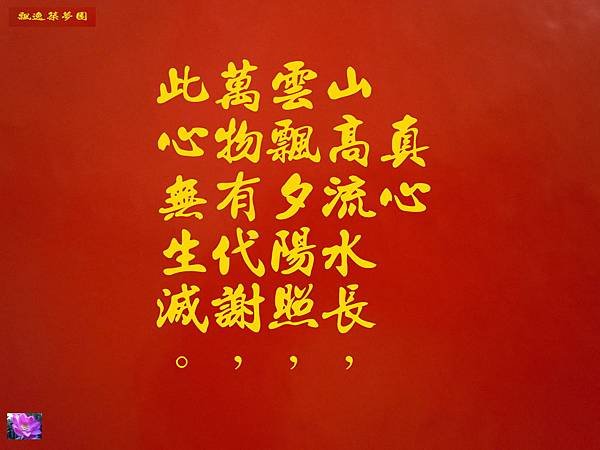 飄逸築夢園
真心
山高流水長，
雲飄夕陽照，
萬物有代謝，
此心無生滅。